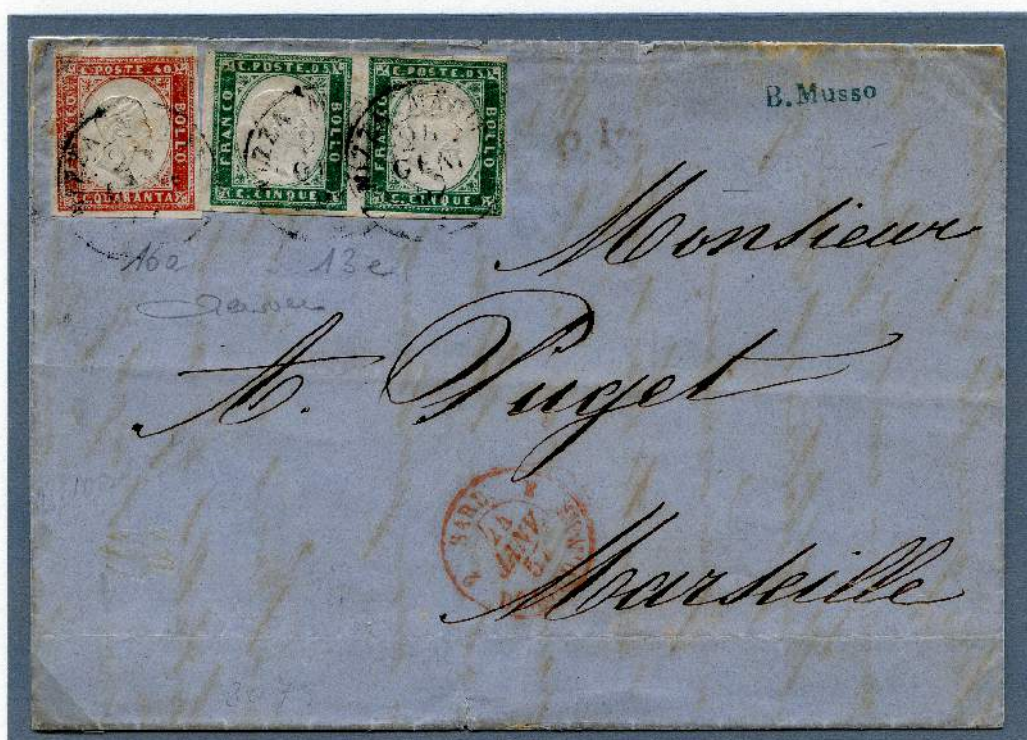 C. POSTE 40
FRANCO
BOLLO
C. QUARANTA
C. POSTE 05
FRANCO
BOLLO
C. CINQUE
C. POSTE 05
FRANCO
BOLLO
C. CINQUE
NIZZA
GEN
B. Musso
Monsieur
16e
13e
A. Puget
SARD.
JANV.
Marseille